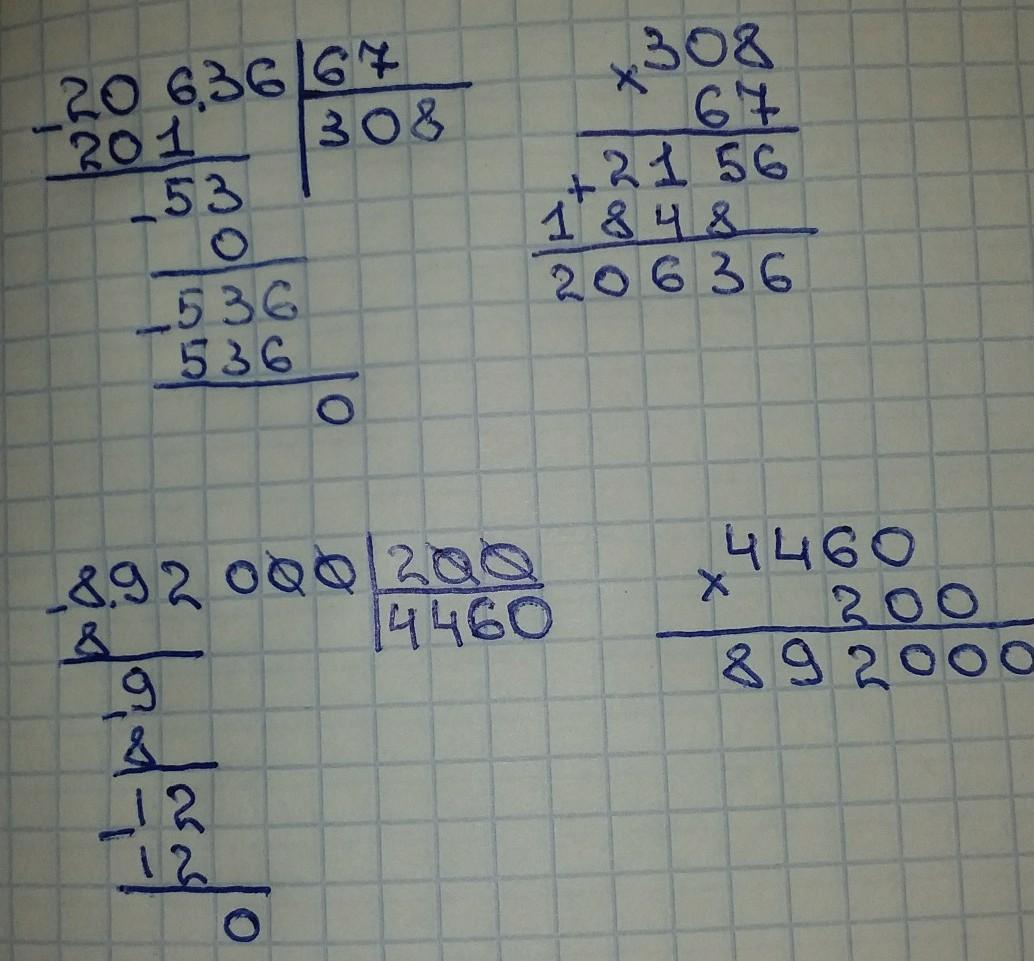 20 6.36 | 67
- 201 | 308
- 53
0
- 536
536
0
× 308
67
+ 2156
1848
20636
8.92 000 | 200
- 8 | 4460
- 9
8
- 12
12
0
× 4460
200
892000